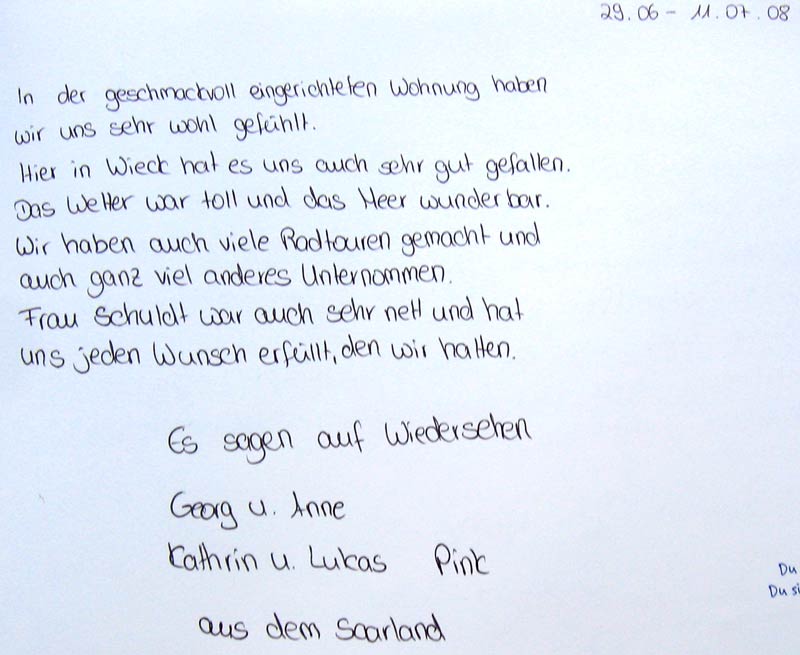 29.06 – 11.07.08
In der geschmackvoll eingerichteten Wohnung haben
wir uns sehr wohl gefühlt.
Hier in Wieck hat es uns auch sehr gut gefallen.
Das Wetter war toll und das Meer wunderbar.
Wir haben auch viele Radtouren gemacht und
auch ganz viel anderes Unternommen.
Frau Schuldt war auch sehr nett und hat
uns jeden Wunsch erfüllt, den wir hatten.
Es sagen auf Wiedersehen
Georg u. Anne
Kathrin u. Lukas Pink
Du
Du si
aus dem Saarland